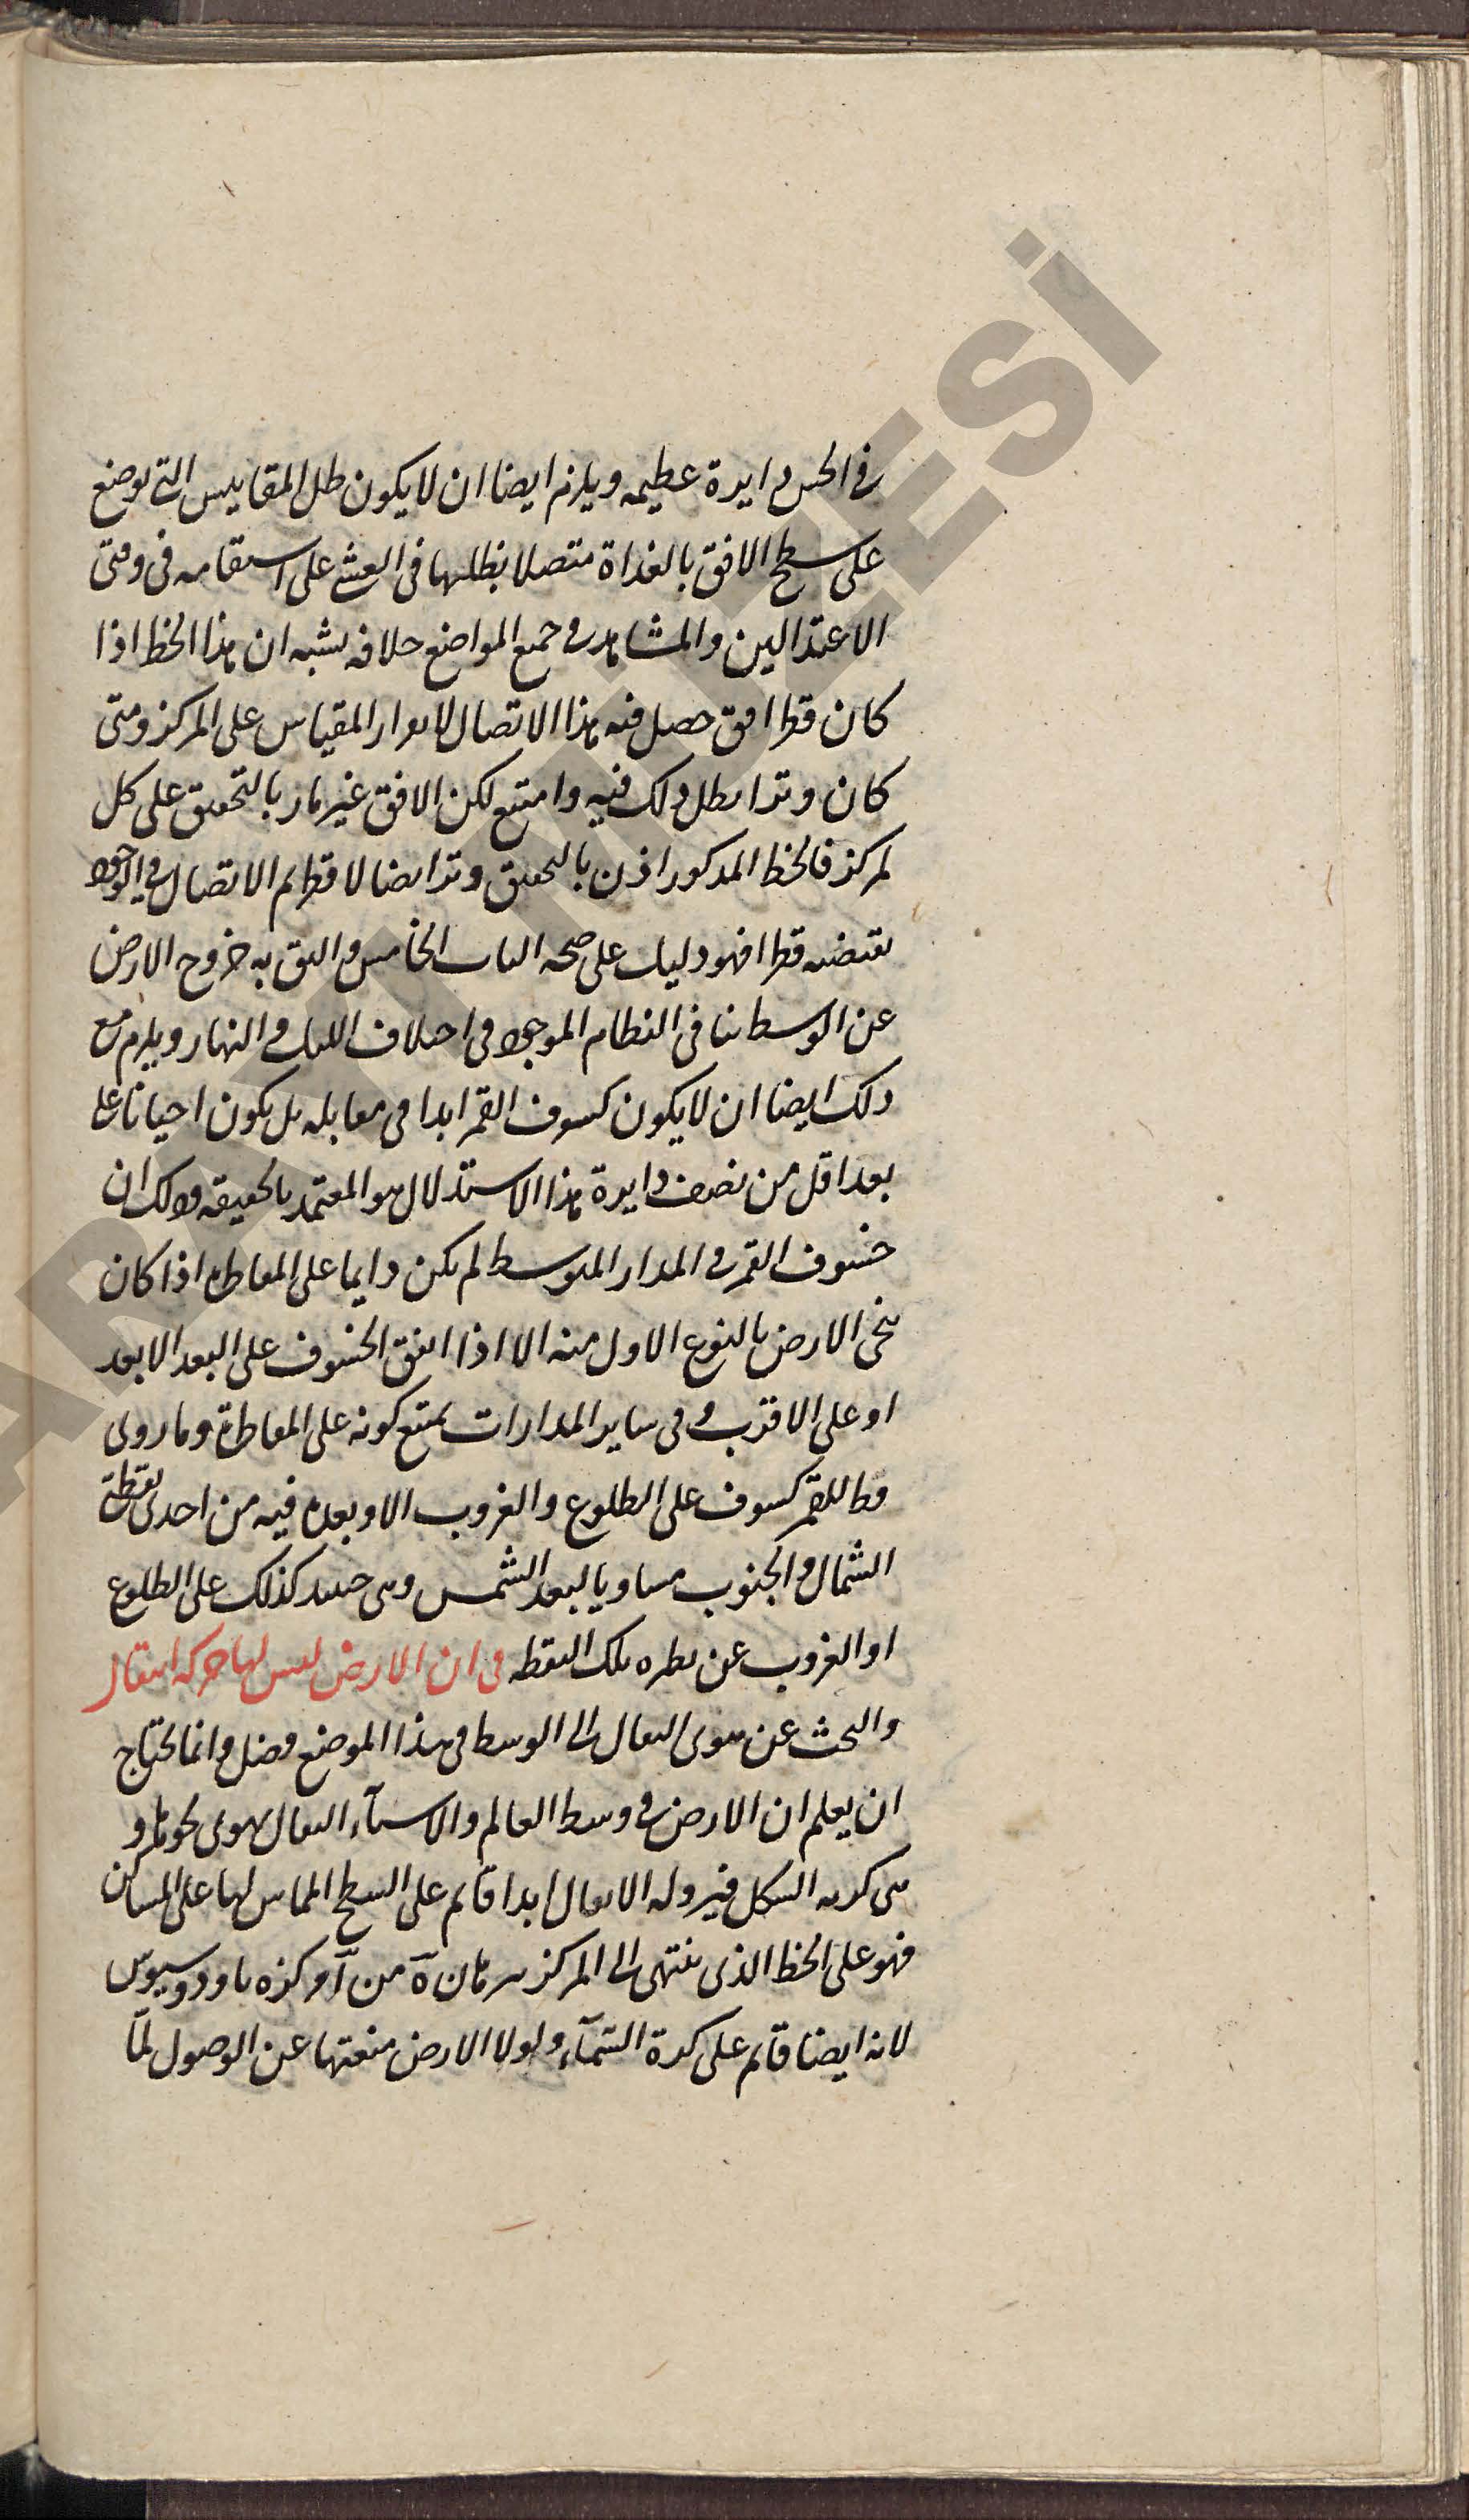 في الحس دايرة عظيمه ويلزم ايضا ان لا يكون ظل المقاييس التي توضع
على سطح الافق بالغداة متصلا بظلها في العشي على استقامه في وقتي
الاعتدالين والمشاهد في جميع المواضع خلافه يشبه ان هذا الخط اذا
كان قطرا افق حصل فيه هذا الاتصال المقياس على المركز ومتى
كان وترا بطل ذلك فيه وامتنع لكن الافق غير مار بالتحقيق على كل
مركز فالخط المذكور اذن بالتحقيق وتر ايضا لا قطر ثم الاتصال في الوجود
يقتضيه قطرا فهو دليل على صحه الباب الخامس واليق به خروج الارض
عن الوسط ينافي النظام الموجود في اختلاف الليل والنهار ويلزم مع
ذلك ايضا ان لا يكون كسوف القمر ابدا في مقابله بل يكون احيانا على
بعد اقل من نصف دايرة هذا الاستدلال هو المعتمد بالحقيقه وذلك ان
خسوف القمر في المدار المتوسط لم يكن دايما على المقاطرة اذا كان
نحى الارض بالنوع الاول منه الا اذا اتفق الخسوف على البعد الابعد
او على الاقرب وفي ساير المدارات يمتنع كونه على المقاطرة وما روى
قط للقمر كسوف على الطلوع والغروب الا وبعده فيه من احدى نقطتي
الشمال والجنوب مساويا لبعد الشمس وهي حينئذ كذلك على الطلوع
او الغروب عن نظيره تلك النقطه في ان الارض ليس لها حركه انتقال
والبحث عن هوى الثقال الى الوسط في هذا الموضع فضل وانما يحتاج
ان يعلم ان الارض في وسط العالم والاشياء الثقال يهوى نحوها و
هي كريه الشكل الاثقال ابدا قايم على السطح المماس لها على المساكن
فهو على الخط الذي ينتهي الى المركز من آ كزه ثاودوسيوس
لانه ايضا قايم على كرة السماء ولولا الارض منعتها عن الوصول لما
ARAŞTIRMA MÜZESİ